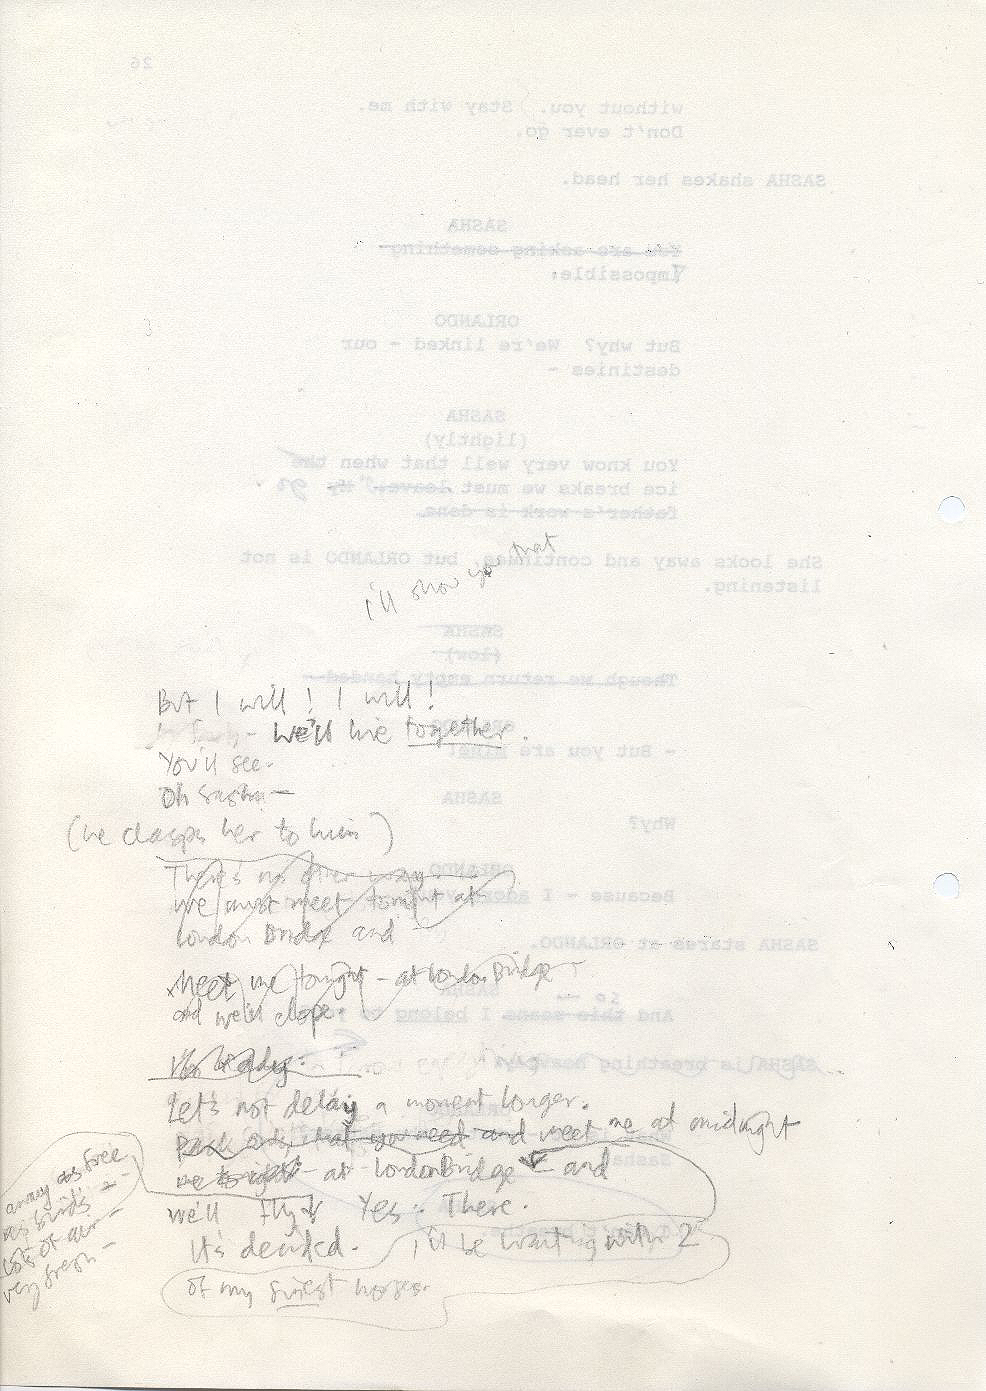 26
without you. Stay with me.
Don't ever go.
SASHA shakes her head.
SASHA
You are asking something
Impossible.
ORLANDO
But why? We're linked - our
destinies -
SASHA
(lightly)
You know very well that when the
ice breaks we must leave. My go.
father's work is done.
She looks away and continues, but ORLANDO is not
listening.
I'll show you that
SASHA
(low)
Though we return empty handed -
But I will! I will!
ORLANDO
- we'll live together.
- But you are mine!
You'll see.
Oh Sasha -
SASHA
Why?
(he clasps her to him)
There's no other way
ORLANDO
we must meet tonight at
Because - I adore you
London Bridge and
SASHA stares at ORLANDO.
Meet me tonight - at London Bridge
SASHA
so -
and we'll elope.
And this means I belong to
SASHA is breathing heavily.
Let's not delay a moment longer.
ORLANDO
that you need and meet me at midnight
Sasha
- at London Bridge and
away as free
as birds -
lots of air -
very fresh -
we'll fly Yes. There.
It's decided. I'll be waiting with 2
of my finest horses.